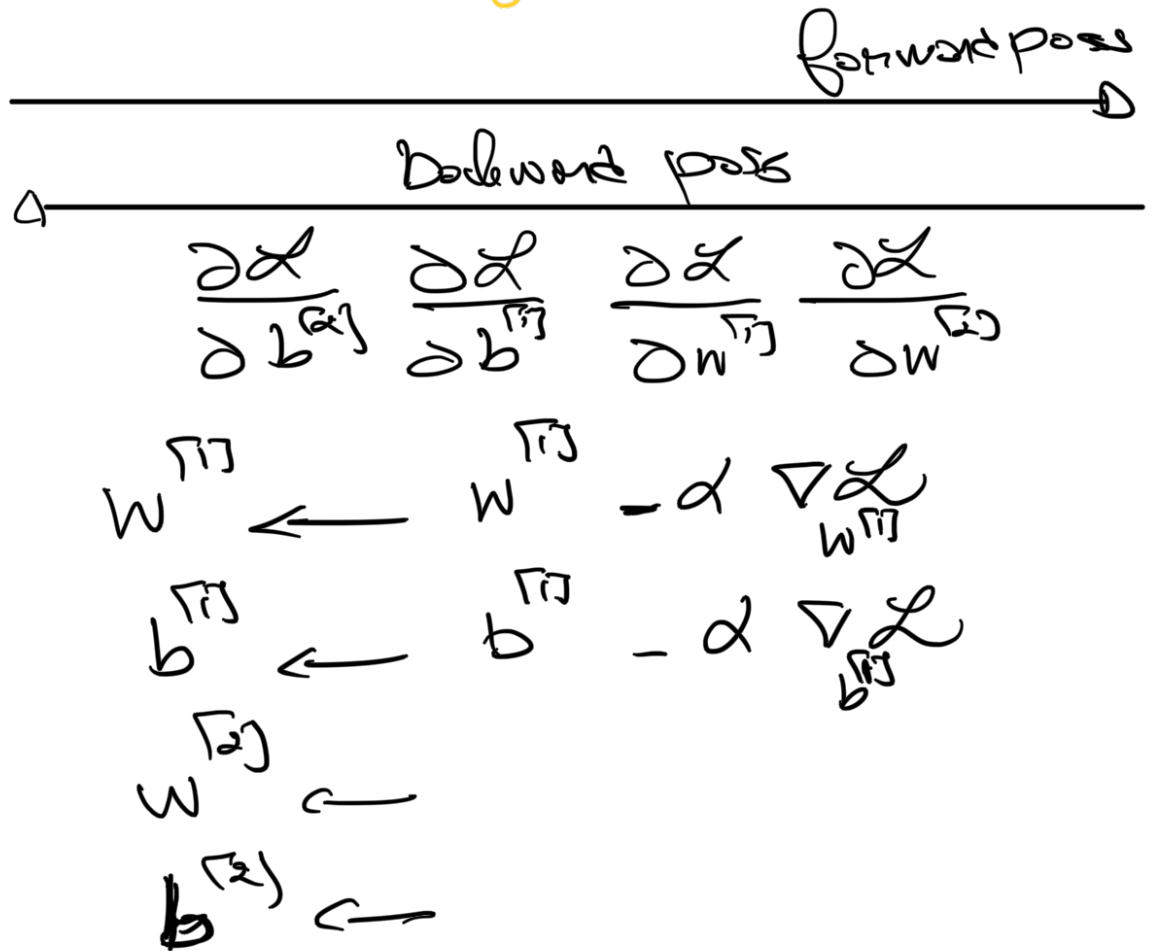 forward pass
Backward pass
∂ℒ/∂b^[2] ∂ℒ/∂b^[1] ∂ℒ/∂w^[1] ∂ℒ/∂w^[2]
w^[1] ← w^[1] - α ∇_{w^[1]} ℒ
b^[1] ← b^[1] - α ∇_{b^[1]} ℒ
w^[2] ←
b^[2] ←